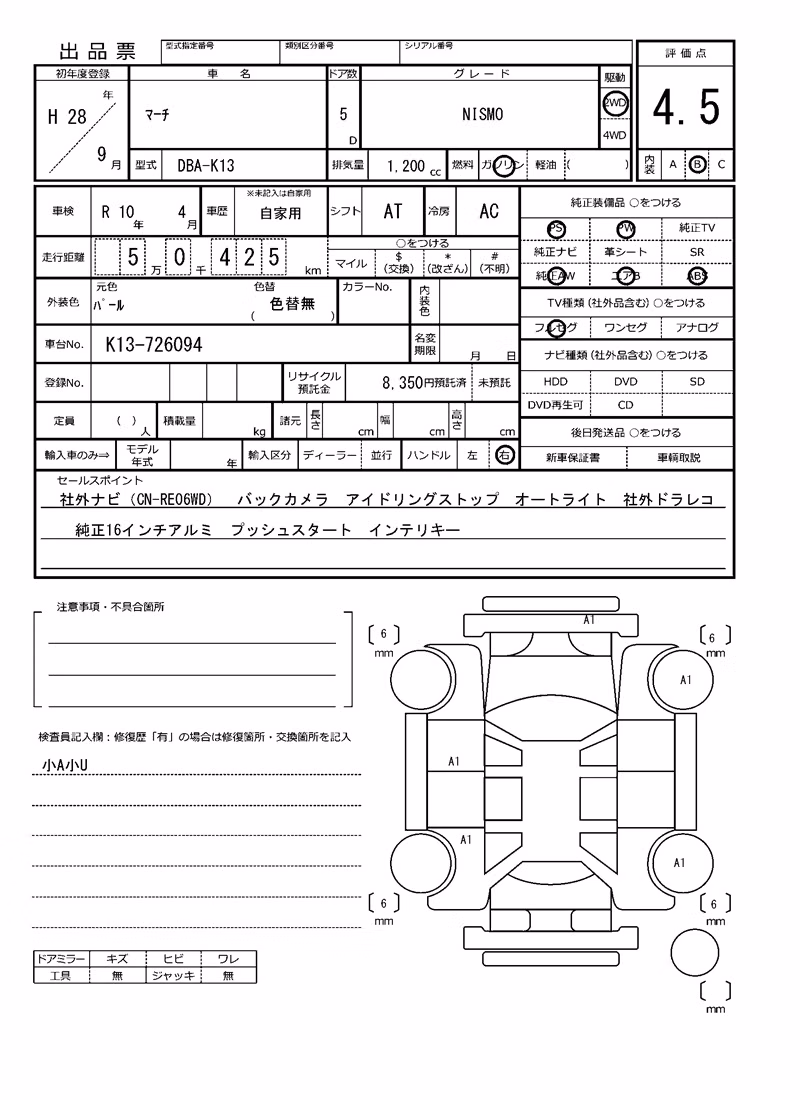 出品票
型式指定番号 類別区分番号 シリアル番号
評価点
初年度登録 車名 ドア数 グレード 駆動
H 28 年 9 月
マーチ
5 D
NISMO
2WD
4WD
4.5
型式 DBA-K13 排気量 1,200 cc 燃料 ガソリン 軽油 ( )
内装 A B C
車検 R 10 年 4 月 車歴 ※未記入は自家用 自家用 シフト AT 冷房 AC
純正装備品 ○をつける
PS PW 純正TV
純正ナビ 革シート SR
純正AW エアB ABS
走行距離 5 万 0 千 4 2 5 km
○をつける
マイル $(交換) *(改ざん) #(不明)
TV種類(社外品含む)○をつける
フルセグ ワンセグ アナログ
外装色 元色 パール 色替 色替無 ( ) カラーNo. 内装色
車台No. K13-726094 名変期限 月 日
ナビ種類(社外品含む)○をつける
HDD DVD SD
DVD再生可 CD
登録No. リサイクル預託金 8,350円預託済 未預託
定員 ( ) 人 積載量 kg 諸元 長さ cm 幅 cm 高さ cm
後日発送品 ○をつける
新車保証書 車輌取説
輸入車のみ⇒ モデル年式 年 輸入区分 ディーラー 並行 ハンドル 左 右
セールスポイント
社外ナビ(CN-RE06WD) バックカメラ アイドリングストップ オートライト 社外ドラレコ
純正16インチアルミ プッシュスタート インテリキー
注意事項・不具合箇所
検査員記入欄:修復歴「有」の場合は修復箇所・交換箇所を記入
小A小U
A1
6 mm
6 mm
A1
A1
A1
A1
6 mm
6 mm
mm
ドアミラー キズ ヒビ ワレ
工具 無 ジャッキ 無